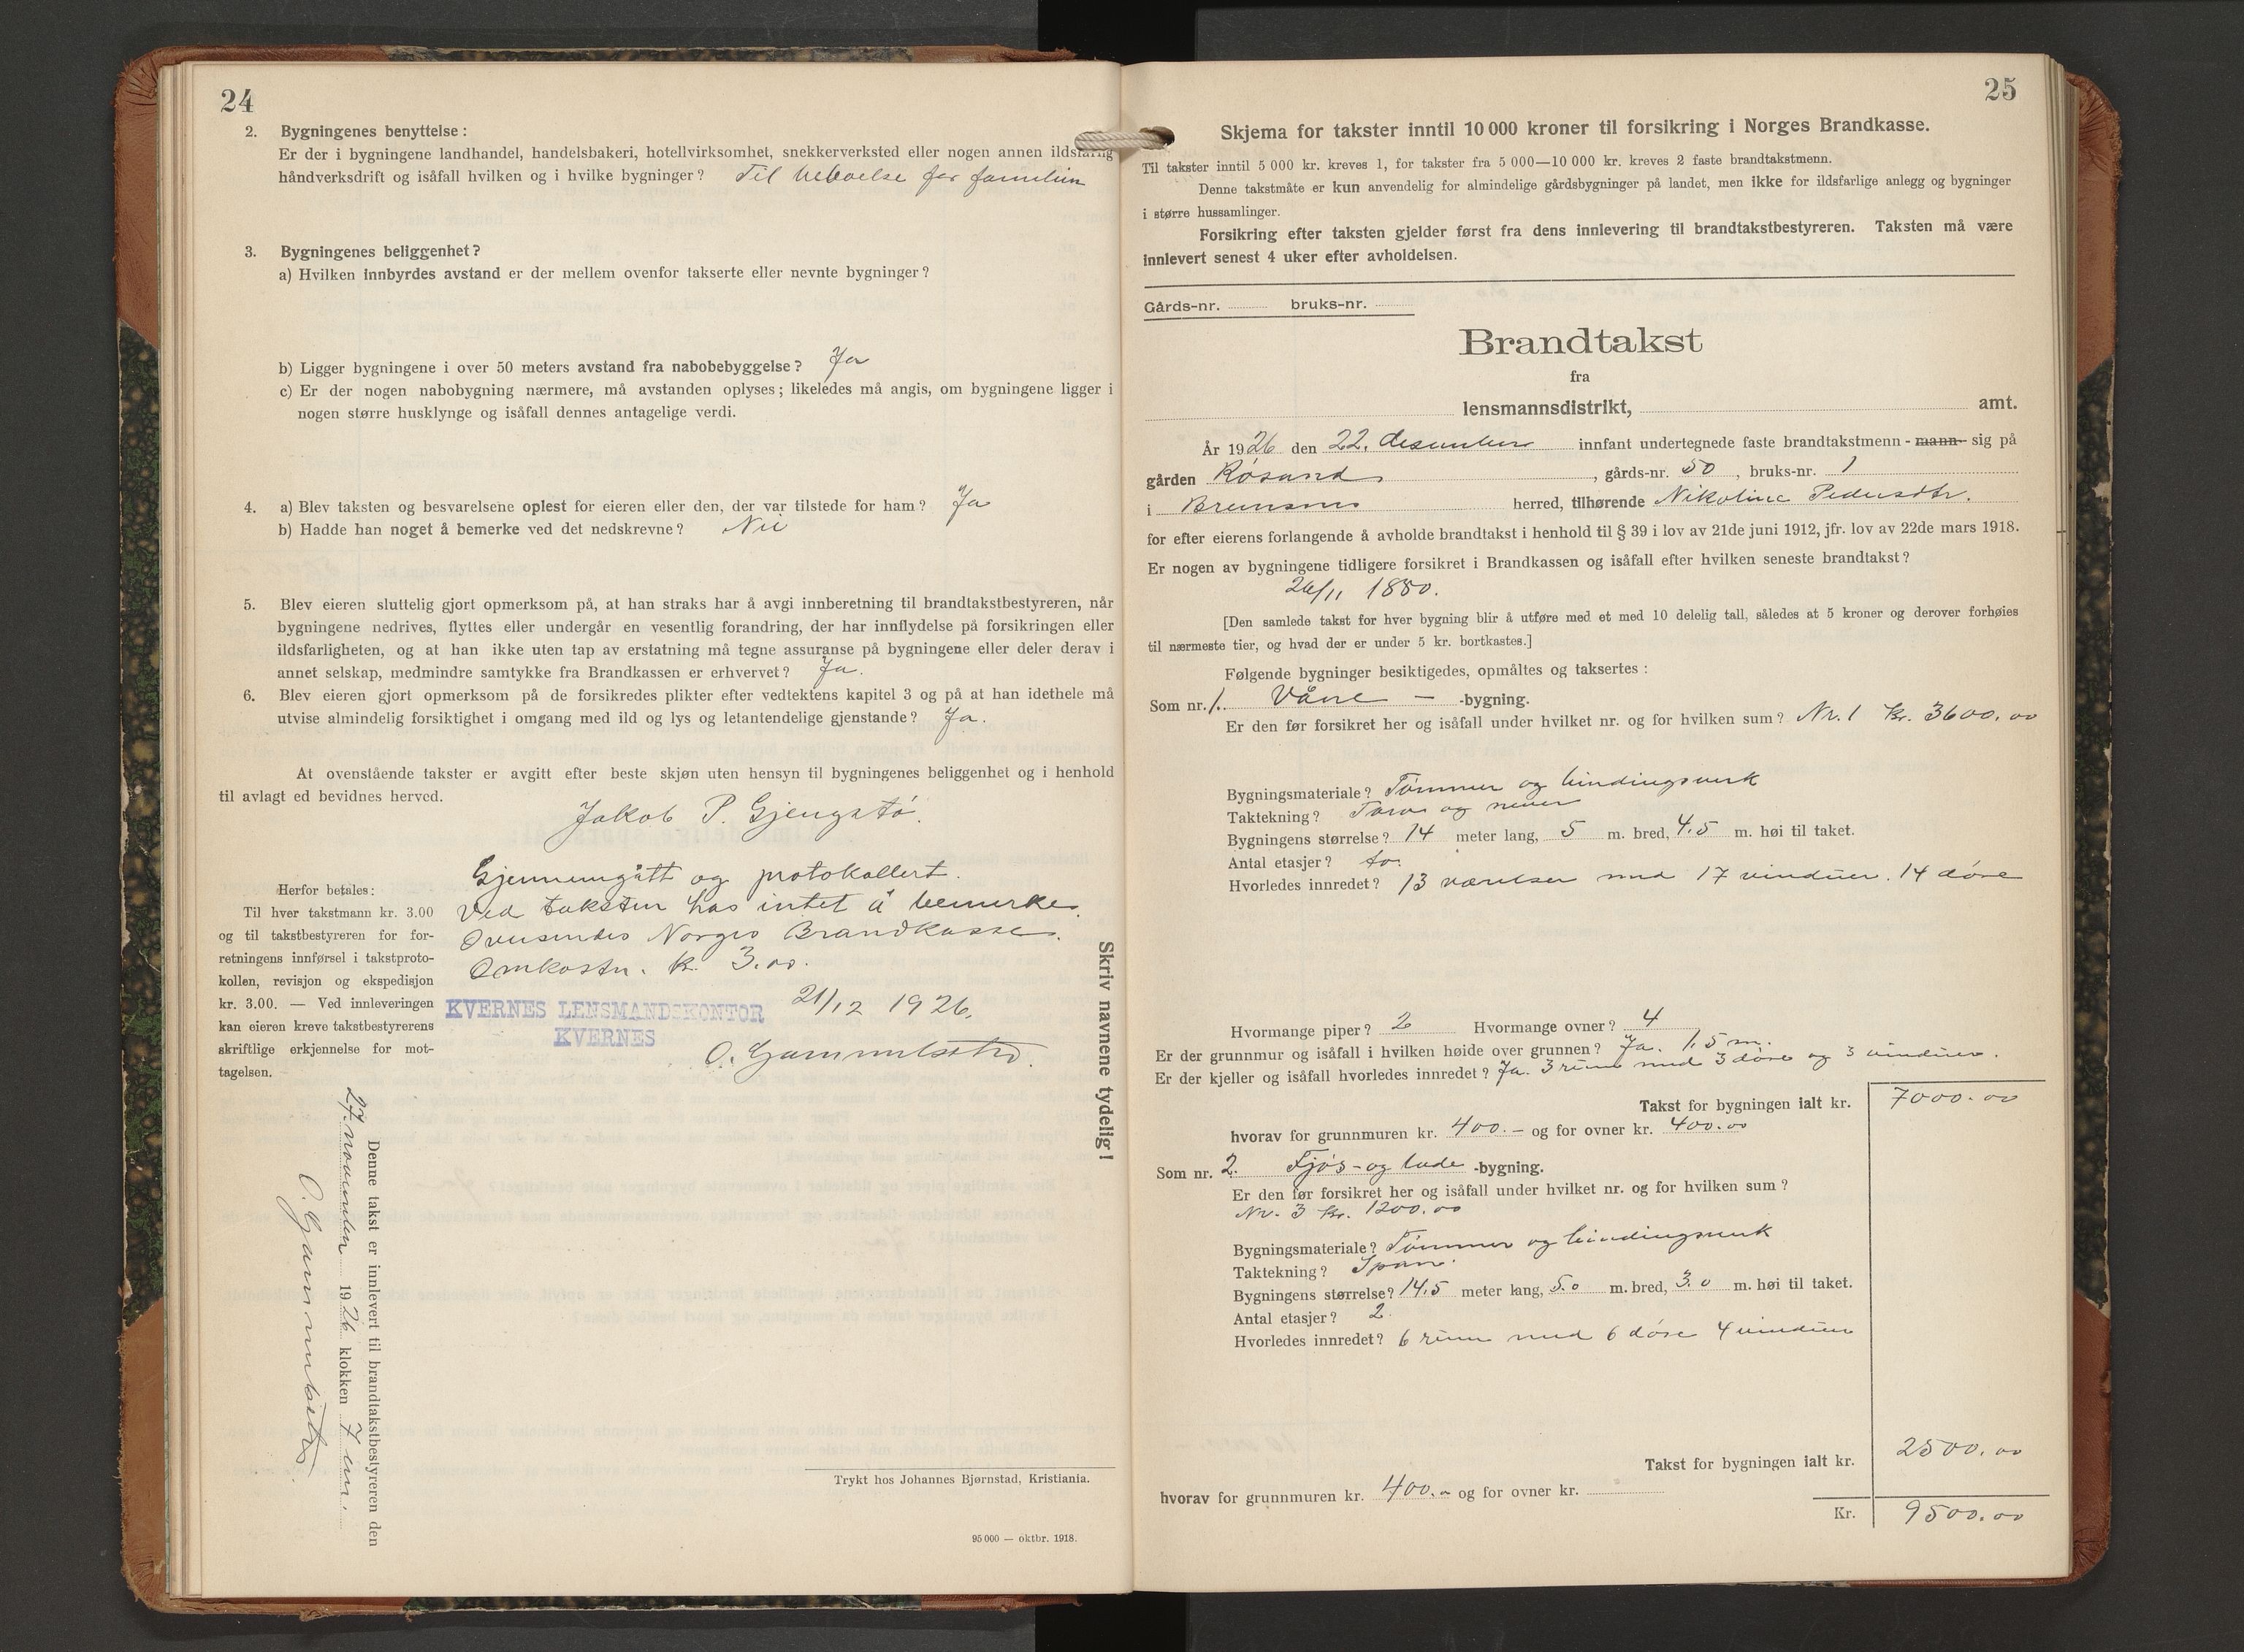 24
2. Bygningenes benyttelse:
Er der i bygningene landhandel, handelsbakeri, hotellvirksomhet, snekkerverksted eller nogen annen ildsfarlig
håndverksdrift og isåfall hvilken og i hvilke bygninger? Til beboelse for familien
3. Bygningenes beliggenhet?
a) Hvilken innbyrdes avstand er der mellem ovenfor takserte eller nevnte bygninger?
b) Ligger bygningene i over 50 meters avstand fra nabobebyggelse? Ja
c) Er der nogen nabobygning nærmere, må avstanden oplyses; likeledes må angis, om bygningene ligger i
nogen større husklynge og isåfall dennes antagelige verdi.
4. a) Blev taksten og besvarelsene oplest for eieren eller den, der var tilstede for ham? Ja
b) Hadde han noget å bemerke ved det nedskrevne? Nei
5. Blev eieren sluttelig gjort opmerksom på, at han straks har å avgi innberetning til brandtakstbestyreren, når
bygningene nedrives, flyttes eller undergår en vesentlig forandring, der har innflydelse på forsikringen eller
ildsfarligheten, og at han ikke uten tap av erstatning må tegne assuranse på bygningene eller deler derav i
annet selskap, medmindre samtykke fra Brandkassen er erhvervet? Ja.
6. Blev eieren gjort opmerksom på de forsikredes plikter efter vedtektens kapitel 3 og på at han idethele må
utvise almindelig forsiktighet i omgang med ild og lys og letantendelige gjenstande? Ja.
At ovenstående takster er avgitt efter beste skjøn uten hensyn til bygningenes beliggenhet og i henhold
til avlagt ed bevidnes herved.
Jakob P. Gjengstø.
Gjennemgått og protokollert.
Ved taksten has intet å bemerke.
Oversendes Norges Brandkasse.
Omkostn. kr. 3.00.
KVERNES LENSMANDSKONTOR
KVERNES
21/12 1926.
O. Gammelsæter.
Herfor betales:
Til hver takstmann kr. 3.00
og til takstbestyreren for for-
retningens innførsel i takstproto-
kollen, revisjon og ekspedisjon
kr. 3.00. — Ved innleveringen
kan eieren kreve takstbestyrerens
skriftlige erkjennelse for mot-
tagelsen.
Denne takst er innlevert til brandtakstbestyreren den
27. november 1926 klokken 7 em.
O. Gammelsæter.
Skriv navnene tydelig!
Trykt hos Johannes Bjørnstad, Kristiania.
95 000 — oktbr. 1918.
25
Skjema for takster inntil 10 000 kroner til forsikring i Norges Brandkasse.
Til takster inntil 5 000 kr. kreves 1, for takster fra 5 000—10 000 kr. kreves 2 faste brandtakstmenn.
Denne takstmåte er kun anvendelig for almindelige gårdsbygninger på landet, men ikke for ildsfarlige anlegg og bygninger
i større hussamlinger.
Forsikring efter taksten gjelder først fra dens innlevering til brandtakstbestyreren. Taksten må være
innlevert senest 4 uker efter avholdelsen.
Gårds-nr. bruks-nr.
Brandtakst
fra
lensmannsdistrikt, amt.
År 1926 den 22. desember innfant undertegnede faste brandtakstmenn - mann- sig på
gården Røsand, gårds-nr. 50, bruks-nr. 1
i Bremsnes herred, tilhørende Nikoline Pedersdtr.
for efter eierens forlangende å avholde brandtakst i henhold til § 39 i lov av 21de juni 1912, jfr. lov av 22de mars 1918.
Er nogen av bygningene tidligere forsikret i Brandkassen og isåfall efter hvilken seneste brandtakst?
26/11 1880.
[Den samlede takst for hver bygning blir å utføre med et med 10 delelig tall, således at 5 kroner og derover forhøies
til nærmeste tier, og hvad der er under 5 kr. bortkastes.]
Følgende bygninger besiktigedes, opmåltes og taksertes:
Som nr. 1. Våne - -bygning.
Er den før forsikret her og isåfall under hvilket nr. og for hvilken sum? Nr. 1 kr. 3600.00
Bygningsmateriale? Tømmer og bindingsverk
Taktekning? Torv og never
Bygningens størrelse? 14 meter lang, 5 m. bred, 4.5 m. høi til taket.
Antal etasjer? to.
Hvorledes innredet? 13 værelser med 17 vinduer. 14 døre
Hvormange piper? 2 Hvormange ovner? 4
Er der grunnmur og isåfall i hvilken høide over grunnen? Ja. 1.5 m.
Er der kjeller og isåfall hvorledes innredet? Ja. 3 rum med 3 døre og 3 vinduer.
Takst for bygningen ialt kr. 7000.00
hvorav for grunnmuren kr. 400.- og for ovner kr. 400.00
Som nr. 2. Fjøs- og lade -bygning.
Er den før forsikret her og isåfall under hvilket nr. og for hvilken sum?
Nr. 3 kr. 1200.00
Bygningsmateriale? Tømmer og bindingsverk
Taktekning? Spon.
Bygningens størrelse? 14.5 meter lang, 5.0 m. bred, 3.0 m. høi til taket.
Antal etasjer? 2
Hvorledes innredet? 6 rum med 6 døre 4 vinduer
Takst for bygningen ialt kr. 2500.00
hvorav for grunnmuren kr. 400.- og for ovner kr.
Kr. 9500.00